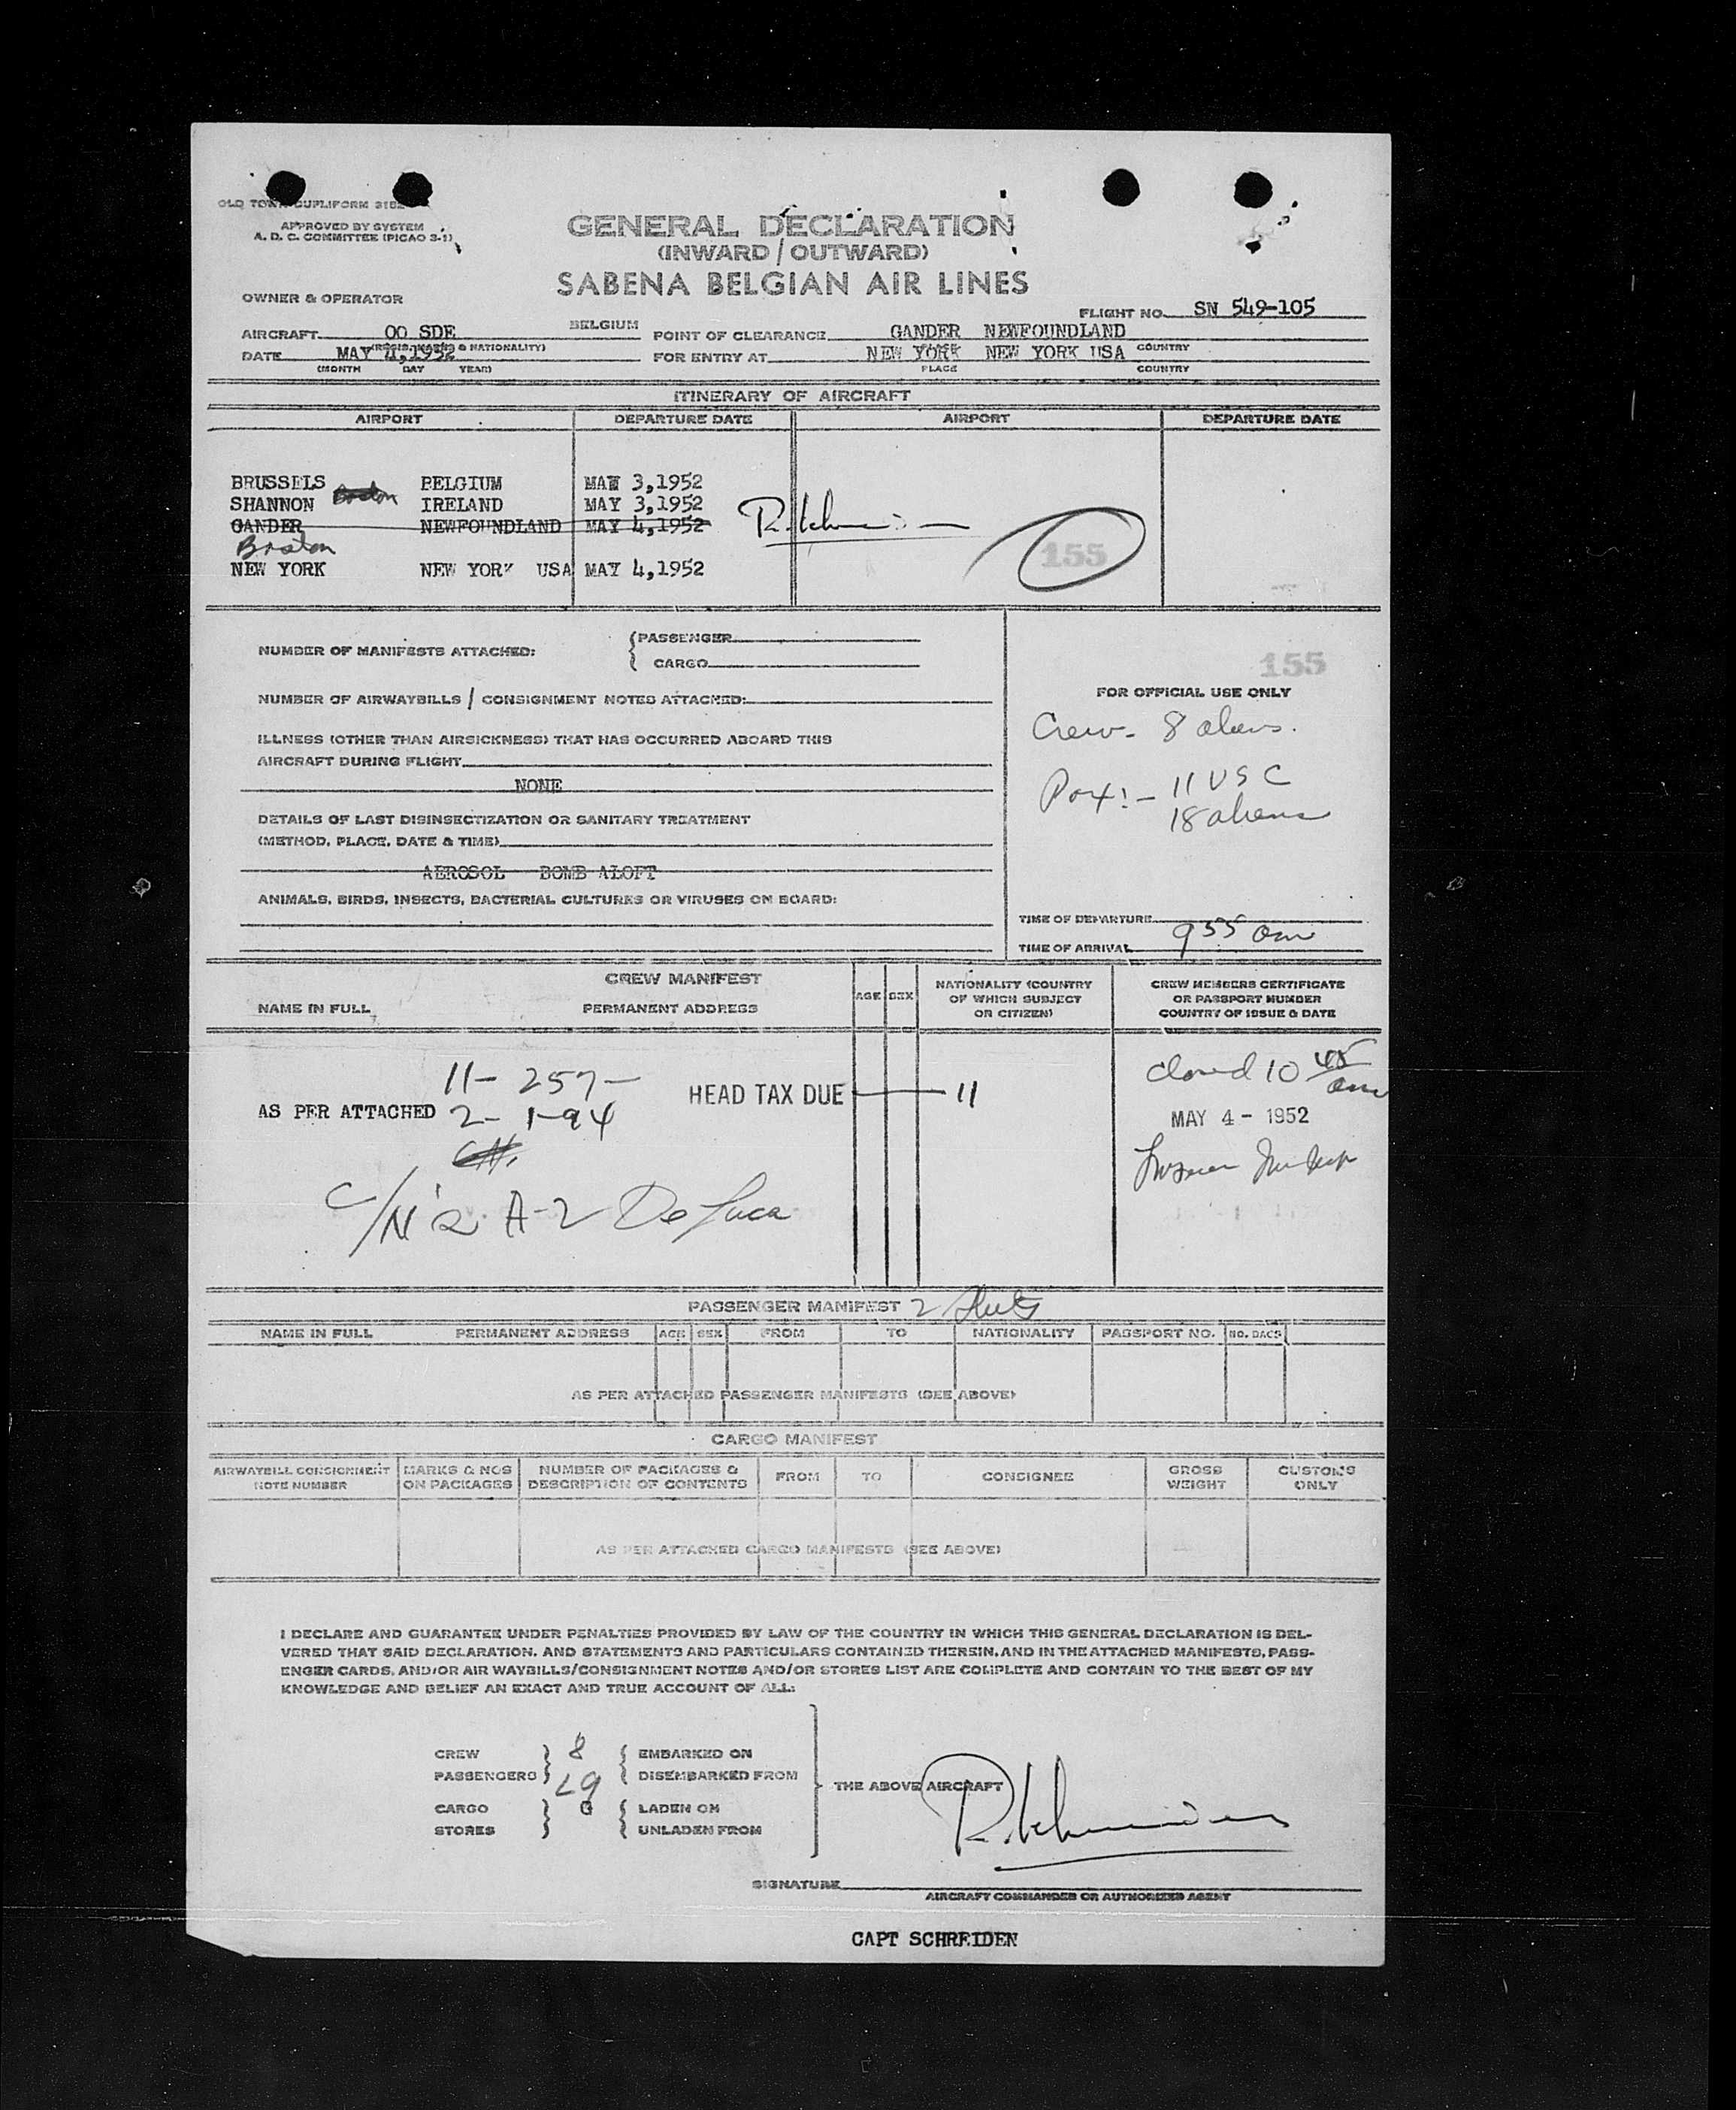 OLD TOWN DUPLIFORM 3182
APPROVED BY SYSTEM
A. D. C. COMMITTEE (PICAO 3-1)
GENERAL DECLARATION
(INWARD / OUTWARD)
SABENA BELGIAN AIR LINES
OWNER & OPERATOR
FLIGHT NO. SN 549-105
AIRCRAFT OO SDE BELGIUM POINT OF CLEARANCE GANDER NEWFOUNDLAND
(REGIS. MARKS & NATIONALITY) PLACE COUNTRY
DATE MAY 4,1952 FOR ENTRY AT NEW YORK NEW YORK USA
(MONTH DAY YEAR) PLACE COUNTRY
ITINERARY OF AIRCRAFT
AIRPORT DEPARTURE DATE AIRPORT DEPARTURE DATE
BRUSSELS BELGIUM MAY 3,1952
SHANNON Boston IRELAND MAY 3,1952
GANDER NEWFOUNDLAND MAY 4,1952
Boston
155
NEW YORK NEW YORK USA MAY 4,1952
NUMBER OF MANIFESTS ATTACHED: PASSENGER
CARGO
155
NUMBER OF AIRWAYBILLS / CONSIGNMENT NOTES ATTACHED:
FOR OFFICIAL USE ONLY
Crew - 8 aliens.
ILLNESS (OTHER THAN AIRSICKNESS) THAT HAS OCCURRED ABOARD THIS
AIRCRAFT DURING FLIGHT
NONE
Pax: - 11 USC
18 aliens
DETAILS OF LAST DISINSECTIZATION OR SANITARY TREATMENT
(METHOD, PLACE, DATE & TIME)
AEROSOL BOMB ALOFT
ANIMALS, BIRDS, INSECTS, BACTERIAL CULTURES OR VIRUSES ON BOARD:
TIME OF DEPARTURE
TIME OF ARRIVAL 9 55 am
CREW MANIFEST
NAME IN FULL PERMANENT ADDRESS AGE SEX NATIONALITY (COUNTRY
OF WHICH SUBJECT
OR CITIZEN)
CREW MEMBERS CERTIFICATE
OR PASSPORT NUMBER
COUNTRY OF ISSUE & DATE
11- 257-
HEAD TAX DUE 11
closed 10 45 am
AS PER ATTACHED 2- 1-94
MAY 4 - 1952
C/N 2 A-2 De Luca
PASSENGER MANIFEST 2
NAME IN FULL PERMANENT ADDRESS AGE SEX FROM TO NATIONALITY PASSPORT NO. NO. BAGS
AS PER ATTACHED PASSENGER MANIFESTS (SEE ABOVE)
CARGO MANIFEST
AIRWAYBILL CONSIGNMENT
NOTE NUMBER
MARKS & NOS
ON PACKAGES
NUMBER OF PACKAGES &
DESCRIPTION OF CONTENTS
FROM TO CONSIGNEE
GROSS
WEIGHT
CUSTOMS
ONLY
AS PER ATTACHED CARGO MANIFESTS (SEE ABOVE)
I DECLARE AND GUARANTEE UNDER PENALTIES PROVIDED BY LAW OF THE COUNTRY IN WHICH THIS GENERAL DECLARATION IS DEL-
VERED THAT SAID DECLARATION, AND STATEMENTS AND PARTICULARS CONTAINED THEREIN, AND IN THE ATTACHED MANIFESTS, PASS-
ENGER CARDS, AND/OR AIR WAYBILLS/CONSIGNMENT NOTES AND/OR STORES LIST ARE COMPLETE AND CONTAIN TO THE BEST OF MY
KNOWLEDGE AND BELIEF AN EXACT AND TRUE ACCOUNT OF ALL:
CREW 8 EMBARKED ON
PASSENGERS 29 DISEMBARKED FROM THE ABOVE AIRCRAFT
CARGO 0 LADEN ON
STORES UNLADEN FROM
SIGNATURE
AIRCRAFT COMMANDER OR AUTHORIZED AGENT
CAPT SCHREIDEN